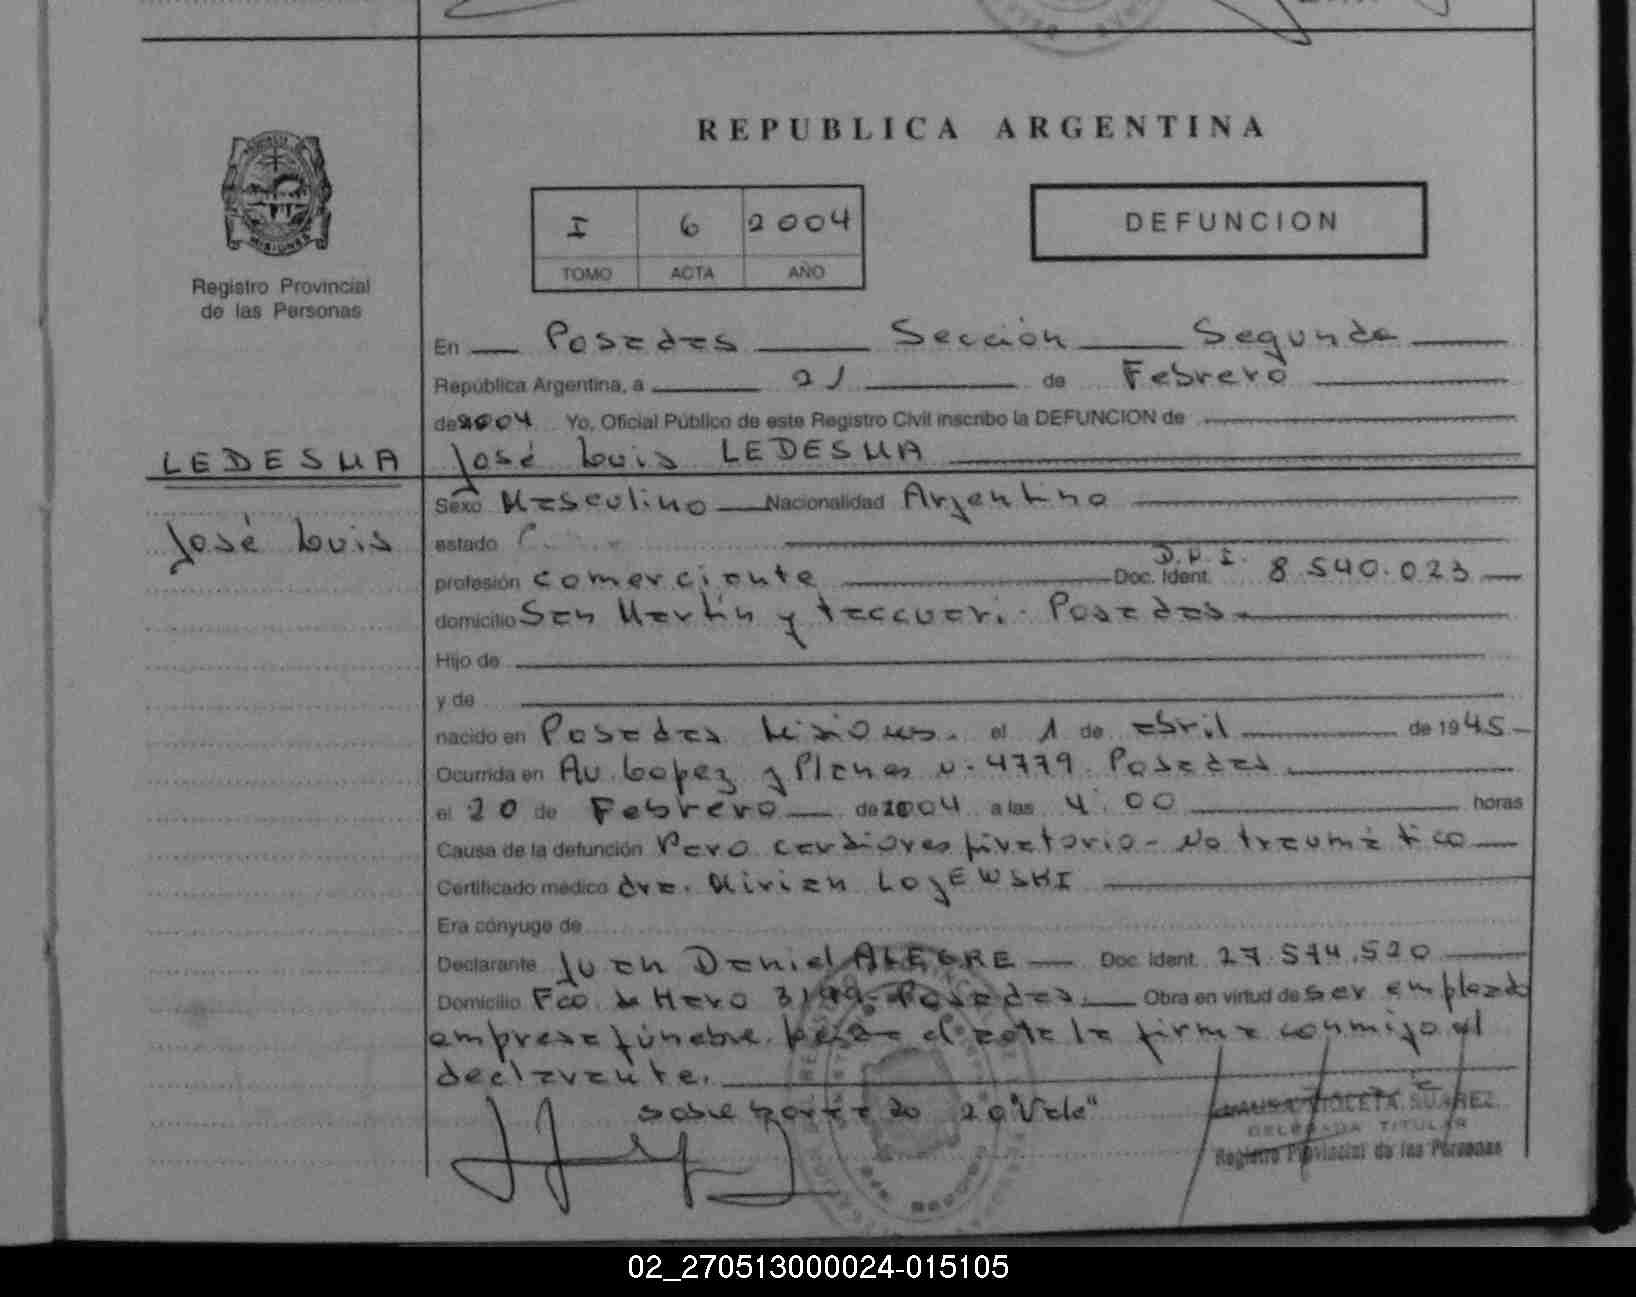 REPUBLICA ARGENTINA
MISIONES
Registro Provincial
de las Personas
I 6 2004
TOMO ACTA AÑO
DEFUNCION
En Posadas Sección Segunda
República Argentina, a 21 de Febrero
de 2004 Yo, Oficial Público de este Registro Civil inscribo la DEFUNCION de
LEDESMA José Luis LEDESMA
Sexo Masculino Nacionalidad Argentino
José Luis estado
D.N.I.
profesión comerciante Doc. Ident. 8.540.023
domicilio San Martín y taccuari. Posadas.
Hijo de
y de
nacido en Posadas Misiones. el 1 de abril de 1945
Ocurrida en Av. Lopez y Planes n. 4779. Posadas
el 20 de Febrero de 2004 a las 4.00 horas
Causa de la defunción Paro cardiorespiratorio - No traumático
Certificado médico dra. Mirian LOJEWSKI
Era cónyuge de
Declarante Juan Daniel ALEGRE Doc. Ident. 27.574.520
Domicilio Fco. de Haro Posadas. Obra en virtud de ser empleado
empresa fúnebre. el acta la firma conmigo el
declarante.
sobre 20 "Vale"
VIOLETA SUAREZ
DELEGADA TITULAR
Registro Provincial de las Personas
02_270513000024-015105